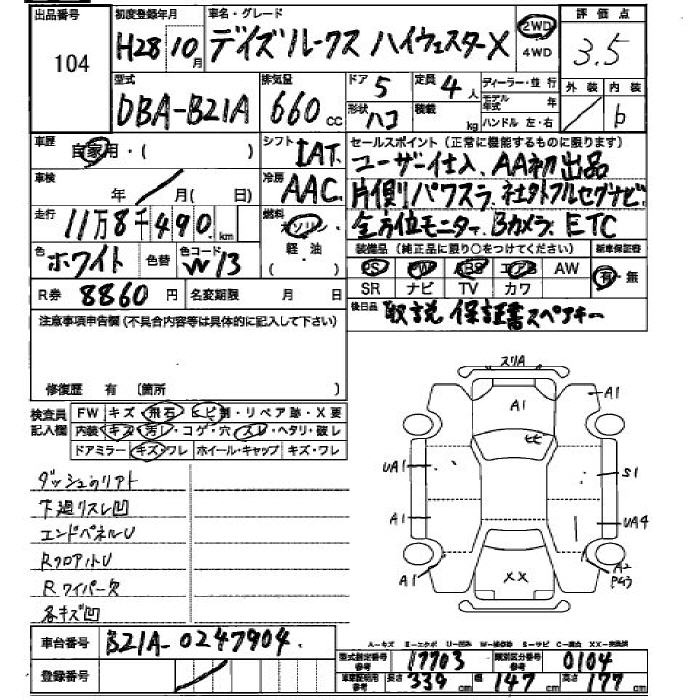 出品番号 初度登録年月 車名・グレード 評価点
104 H28 10月 デイズルークス ハイウェスターX 2WD 4WD 3.5
型式 排気量 ドア 5 定員 4人 ディーラー・並行 外装 内装
DBA-B21A 660cc 形状 ハコ 積載 kg モデル年式 年 ハンドル 左・右 b
車歴 自家用・( ) シフト IAT セールスポイント(正常に機能するものに限ります)
ユーザー仕入、AA初出品
車検 年 月(日) 冷房 AAC 片側パワスラ、社外フルセグナビ、
走行 11万8千490km 燃料 ガソリン 軽・油 ( ) 全方位モニター、Bカメラ、ETC
色 ホワイト 色替 色コード W13 装備品(純正品に限り○をつけてください) 新車保証書
PS PW ABS エアB AW 有・無
R券 8860円 名変期限 月 日 SR ナビ TV カワ
注意事項申告欄(不具合内容等は具体的に記入して下さい) 後日品 取説 保証書 スペアキー
修復歴 有 〔箇所 〕
検査員記入欄 FW キズ・飛石・ヒビ・リペア跡・X要
内装・キズ・汚レ・コゲ・穴・スレ・ヘタリ・破レ
ドアミラー キズ・ワレ ホイール・キャップ キズ・ワレ
スリA
A1 A1
ヒビ
UA1 S1
A1 UA4
A1 XX A2
ダッシュのリアト
下廻リスレ凹
エンドパネルU
RフロアハトU
Rワイパー欠
各キズ凹
車台番号 B21A-0247904
登録番号
A-キズ E-エクボ U-凹み W-補修跡 S-サビ C-腐食 XX-交換済
型式指定番号 参考 17703 類別区分番号 参考 0104
車検証明用 参考 長さ 339cm 幅 147cm 高さ 177cm